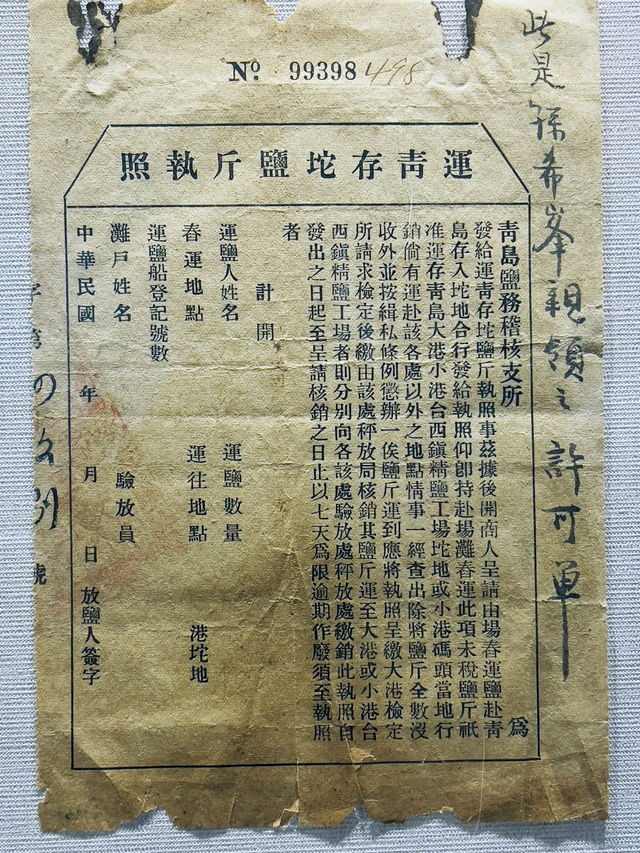 No. 99398 498
此是希峯親領之許可单
運青存坨鹽斤執照
青島鹽務稽核支所 為
發給運青存坨鹽斤執照事茲據後開商人呈請由場春運鹽赴青
島存入坨地合行發給執照仰卽持赴場灘春運此項未稅鹽斤祇
准運存青島大港小港台西鎭精鹽工場坨地或小港碼頭當地行
銷倘有運赴該各處以外之地點情事一經查出除將鹽斤全數沒
收外並按緝私條例懲辦一俟鹽斤運到應將執照呈繳大港檢定
所請求檢定後繳由該處秤放局核銷其鹽斤運至大港或小港台
西鎭精鹽工場者則分別向各該處驗放處秤放處繳銷此執照自
發出之日起至呈請核銷之日止以七天爲限逾期作廢須至執照
者
計開
運鹽人姓名 運鹽數量
春運地點 運往地點 港坨地
運鹽船登記號數
灘戶姓名 驗放員
中華民國 年 月 日 放鹽人簽字
字第 號